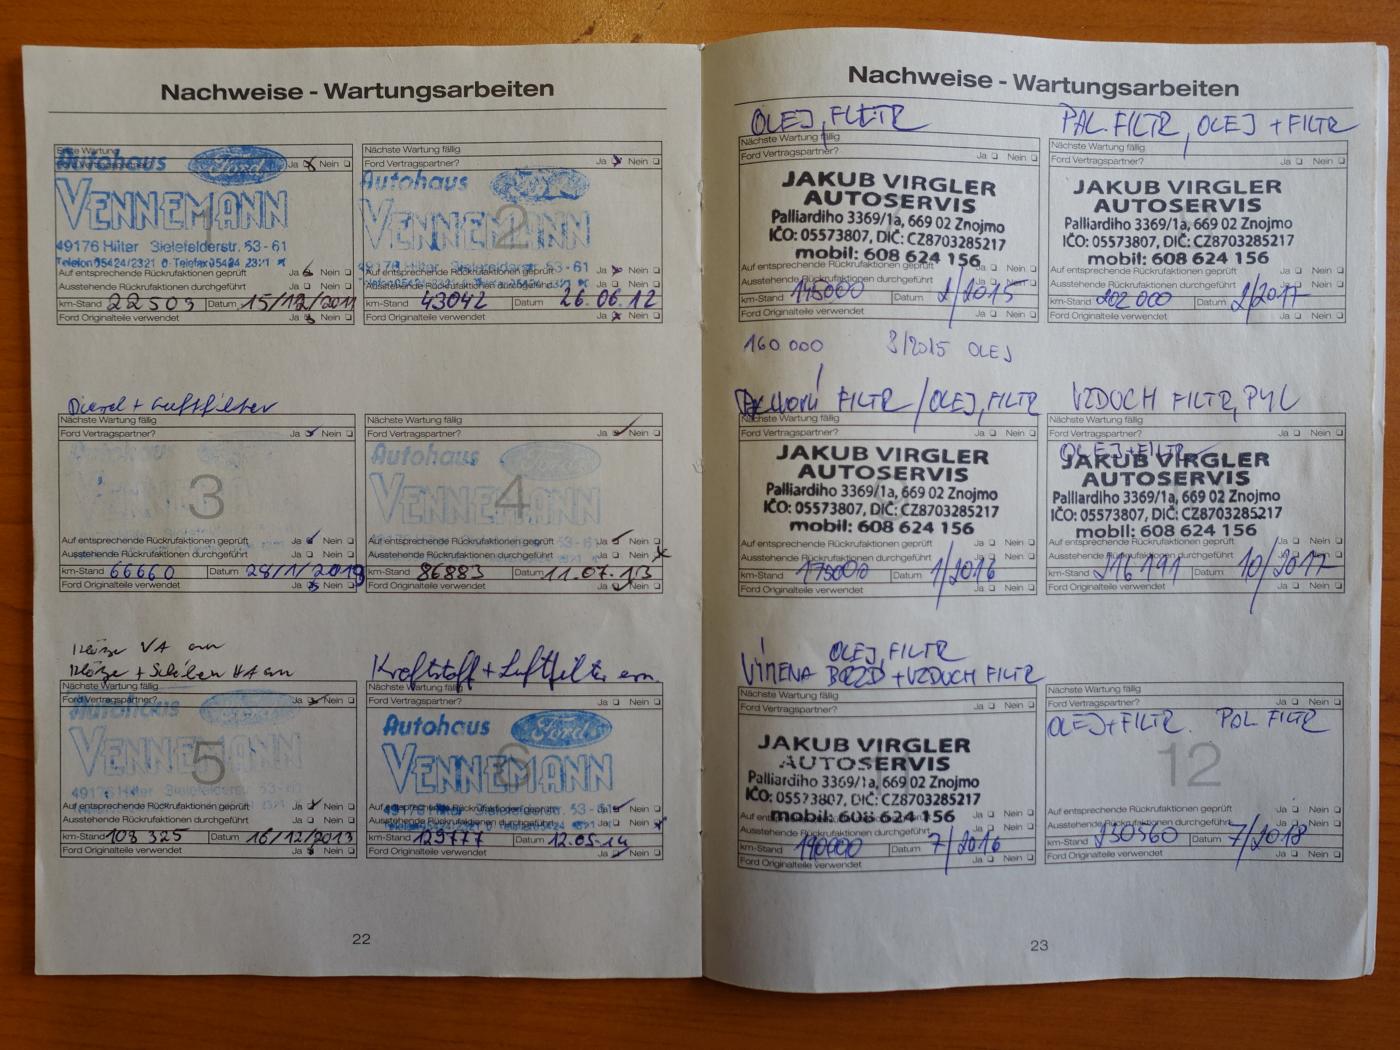 Nachweise - Wartungsarbeiten
Erste Wartung
Ja Nein
Autohaus Ford
VENNEMANN
1
49176 Hilter Bielefelderstr. 53-61
Telefon 05424/2321 0 Telefax 05424 2321
Auf entsprechende Rückrufaktionen geprüft Ja Nein
Ausstehende Rückrufaktionen durchgeführt Ja Nein
km-Stand 22503 Datum 15/12/2011
Ford Originalteile verwendet Ja Nein
Nächste Wartung fällig
Ford Vertragspartner? Ja Nein
Autohaus Ford
VENNEMANN
2
49176 Hilter Bielefelderstr. 53-61
Auf entsprechende Rückrufaktionen geprüft Ja Nein
Ausstehende Rückrufaktionen durchgeführt Ja Nein
km-Stand 43042 Datum 26.06.12
Ford Originalteile verwendet Ja Nein
Diesel + Luftfilter
Nächste Wartung fällig
Ford Vertragspartner? Ja Nein
3
Auf entsprechende Rückrufaktionen geprüft Ja Nein
Ausstehende Rückrufaktionen durchgeführt Ja Nein
km-Stand 66660 Datum 28/1/2013
Ford Originalteile verwendet Ja Nein
Nächste Wartung fällig
Ford Vertragspartner? Ja Nein
Autohaus Ford
VENNEMANN
4
Auf entsprechende Rückrufaktionen geprüft Ja Nein
Ausstehende Rückrufaktionen durchgeführt Ja Nein
km-Stand 86883 Datum 11.07.13
Ford Originalteile verwendet Ja Nein
Klötze VA
Klötze + Scheiben HA
Nächste Wartung fällig
Ford Vertragspartner? Ja Nein
Autohaus
VENNEMANN
5
49176 Hilter Bielefelderstr.
Auf entsprechende Rückrufaktionen geprüft Ja Nein
Ausstehende Rückrufaktionen durchgeführt Ja Nein
km-Stand 108325 Datum 16/12/2013
Ford Originalteile verwendet Ja Nein
Kraftstoff + Luftfilter ern.
Nächste Wartung fällig
Ford Vertragspartner? Ja Nein
Autohaus Ford
VENNEMANN
6
Auf entsprechende Rückrufaktionen geprüft Ja Nein
Ausstehende Rückrufaktionen durchgeführt Ja Nein
km-Stand 129777 Datum 12.05.14
Ford Originalteile verwendet Ja Nein
22
Nachweise - Wartungsarbeiten
OLEJ, FILTR
Nächste Wartung fällig
Ford Vertragspartner? Ja Nein
JAKUB VIRGLER
AUTOSERVIS
Palliardiho 3369/1a, 669 02 Znojmo
IČO: 05573807, DIČ: CZ8703285217
mobil: 608 624 156
Auf entsprechende Rückrufaktionen geprüft
Ausstehende Rückrufaktionen durchgeführt Ja Nein
km-Stand 145000 Datum 1/2015
Ford Originalteile verwendet Ja Nein
160 000 8/2015 OLEJ
PAL. FILTR, OLEJ + FILTR
Nächste Wartung fällig
Ford Vertragspartner? Ja Nein
JAKUB VIRGLER
AUTOSERVIS
Palliardiho 3369/1a, 669 02 Znojmo
IČO: 05573807, DIČ: CZ8703285217
mobil: 608 624 156
Auf entsprechende Rückrufaktionen geprüft
Ausstehende Rückrufaktionen durchgeführt Ja Nein
km-Stand 202 000 Datum 2/2017
Ford Originalteile verwendet Ja Nein
FILTR / OLEJ, FILTR
Nächste Wartung fällig
Ford Vertragspartner? Ja Nein
JAKUB VIRGLER
AUTOSERVIS
Palliardiho 3369/1a, 669 02 Znojmo
IČO: 05573807, DIČ: CZ8703285217
mobil: 608 624 156
Auf entsprechende Rückrufaktionen geprüft Ja Nein
Ausstehende Rückrufaktionen durchgeführt Ja Nein
km-Stand 175000 Datum 1/2016
Ford Originalteile verwendet Ja Nein
VZDUCH FILTR, PYL
Nächste Wartung fällig
Ford Vertragspartner? Ja Nein
OLEJ + FILTR
JAKUB VIRGLER
AUTOSERVIS
Palliardiho 3369/1a, 669 02 Znojmo
IČO: 05573807, DIČ: CZ8703285217
mobil: 608 624 156
Auf entsprechende Rückrufaktionen geprüft Ja Nein
Ausstehende Rückrufaktionen durchgeführt Ja Nein
km-Stand 216191 Datum 10/2017
Ford Originalteile verwendet Ja Nein
OLEJ, FILTR
VÝMENA BRZD + VZDUCH FILTR
Nächste Wartung fällig
Ford Vertragspartner? Ja Nein
JAKUB VIRGLER
AUTOSERVIS
Palliardiho 3369/1a, 669 02 Znojmo
IČO: 05573807, DIČ: CZ8703285217
mobil: 608 624 156
Ausstehende Rückrufaktionen durchgeführt Ja Nein
km-Stand 190000 Datum 7/2016
Ford Originalteile verwendet Ja Nein
Nächste Wartung fällig
Ford Vertragspartner? Ja Nein
OLEJ + FILTR. POL FILTR
12
Auf entsprechende Rückrufaktionen geprüft Ja Nein
Ausstehende Rückrufaktionen durchgeführt Ja Nein
km-Stand 230560 Datum 7/2018
Ford Originalteile verwendet Ja Nein
23